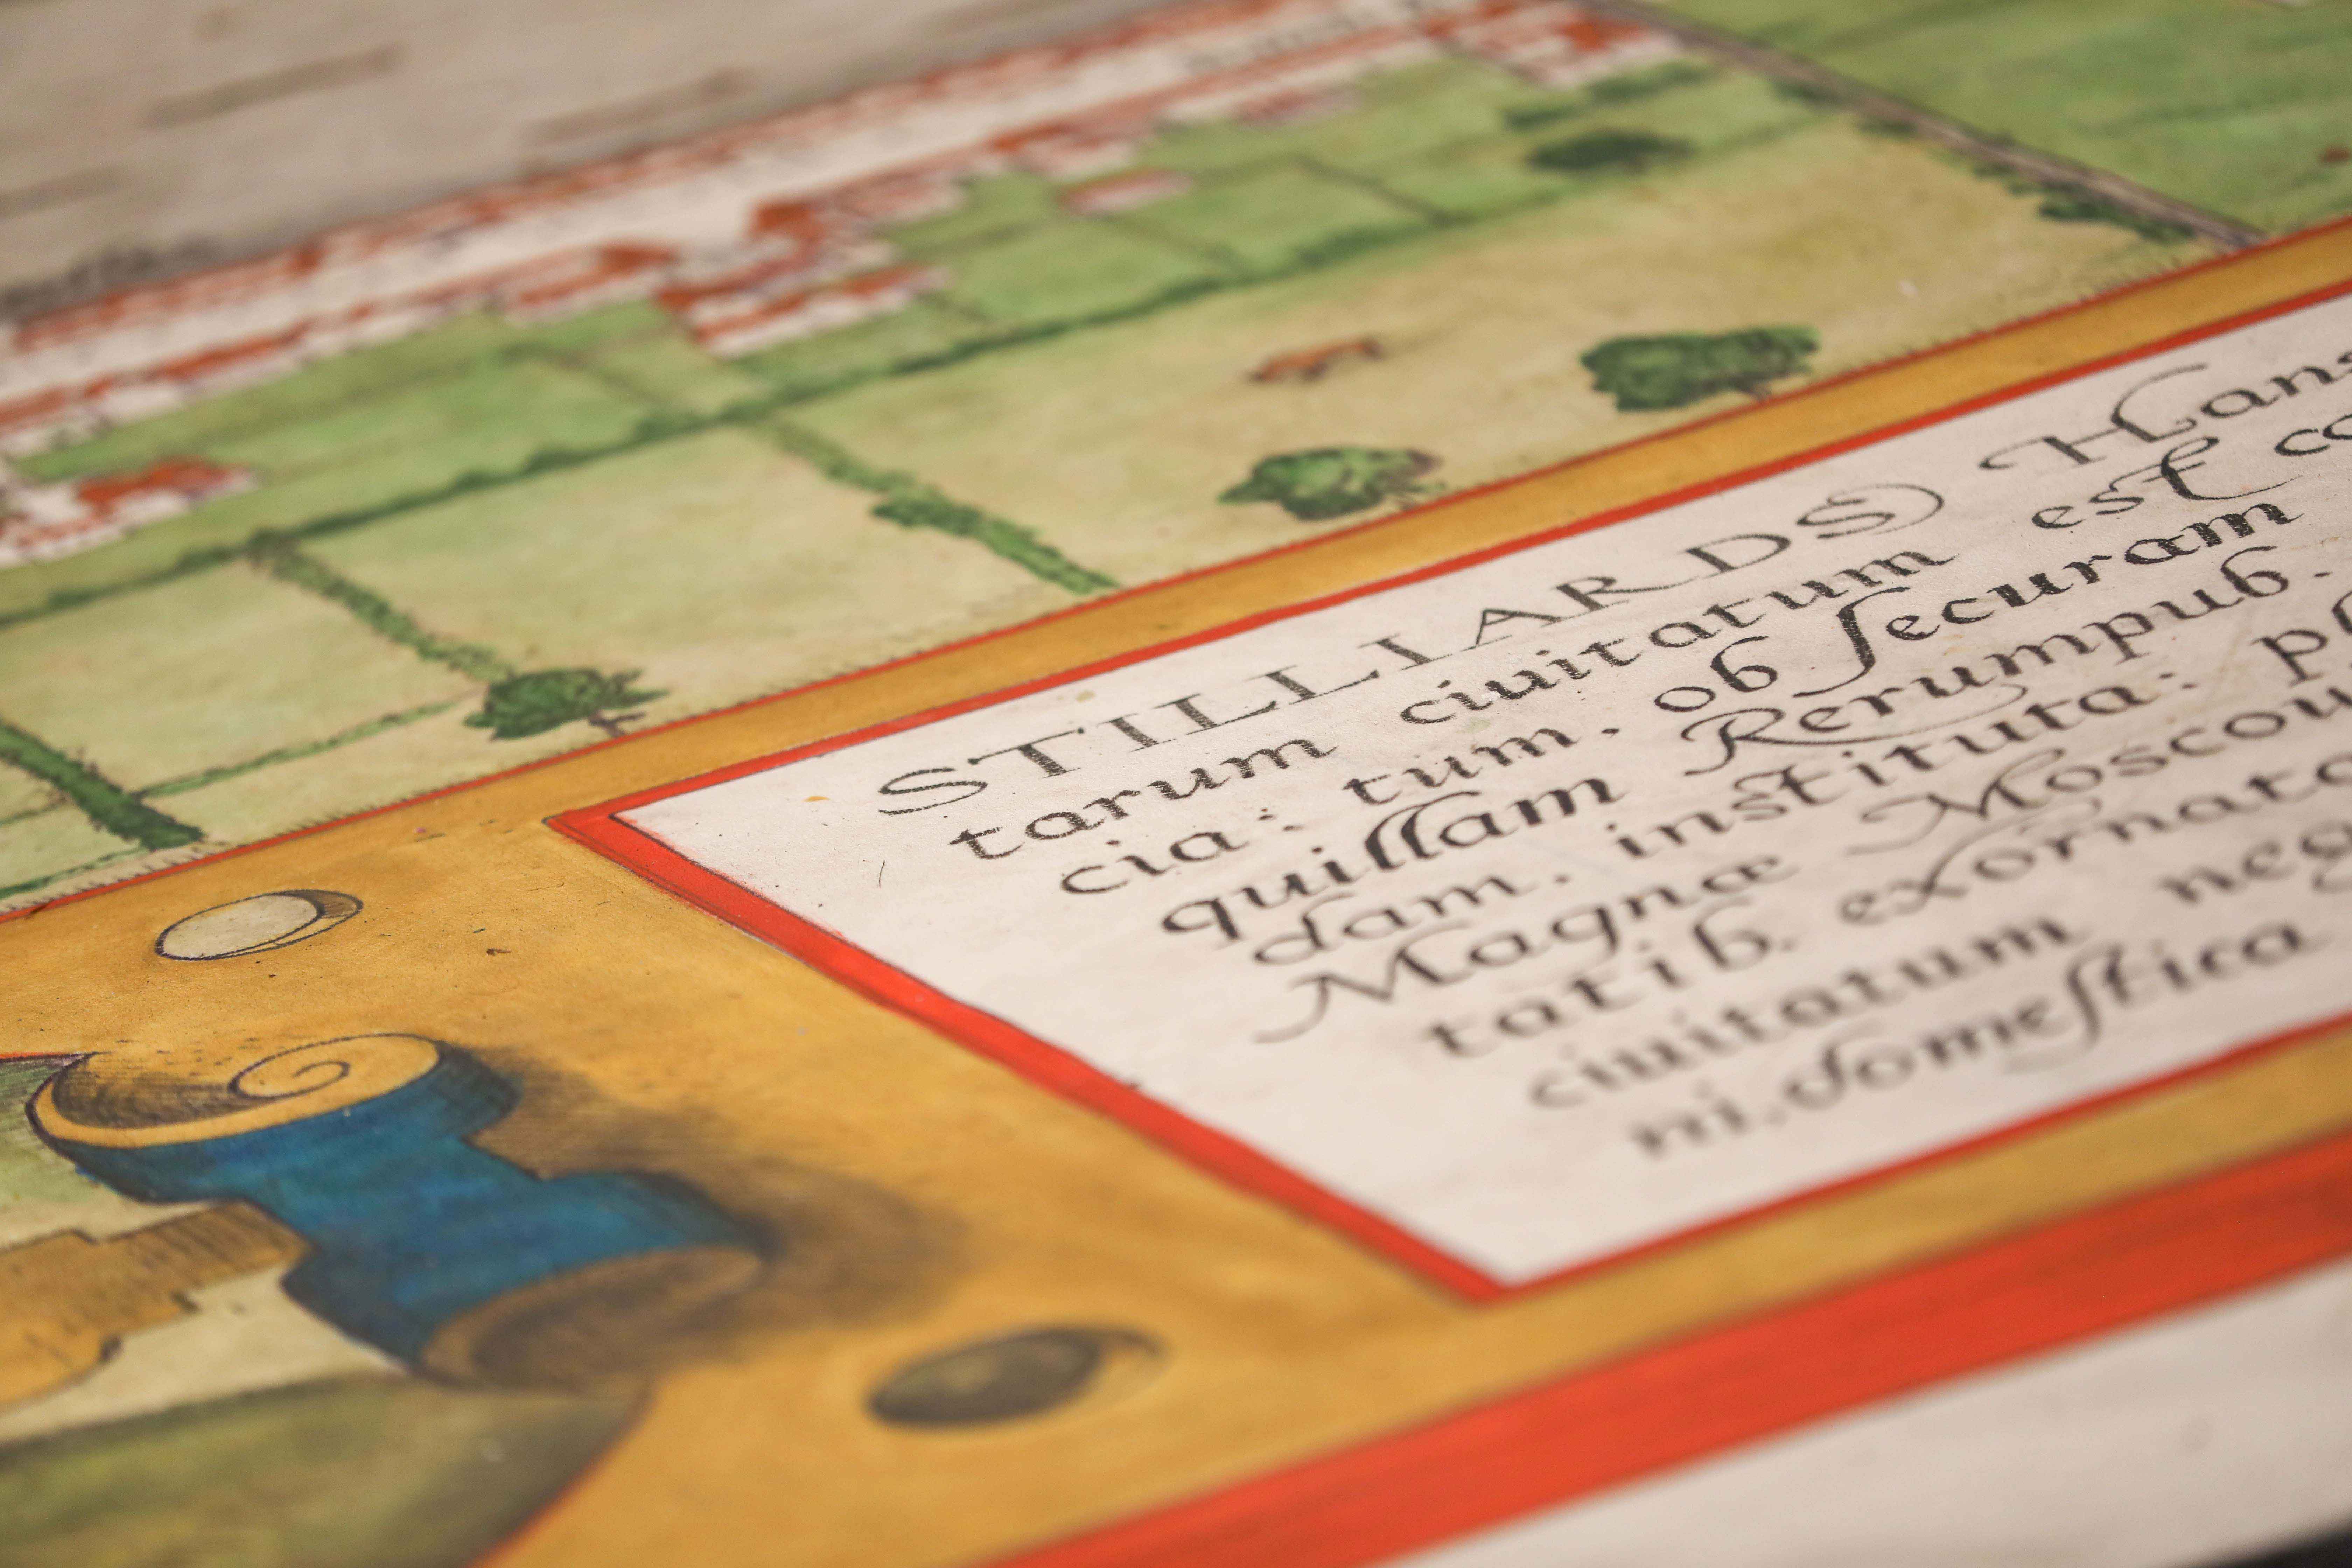 STILLIARDS Hans
tarum ciuitatum est co
cia: tum. ob securam
quillam Rerumpub.
dam. instituta: pl
Magnæ Moscou
tatib. exornato
ciuitatum neg
ni. domestica